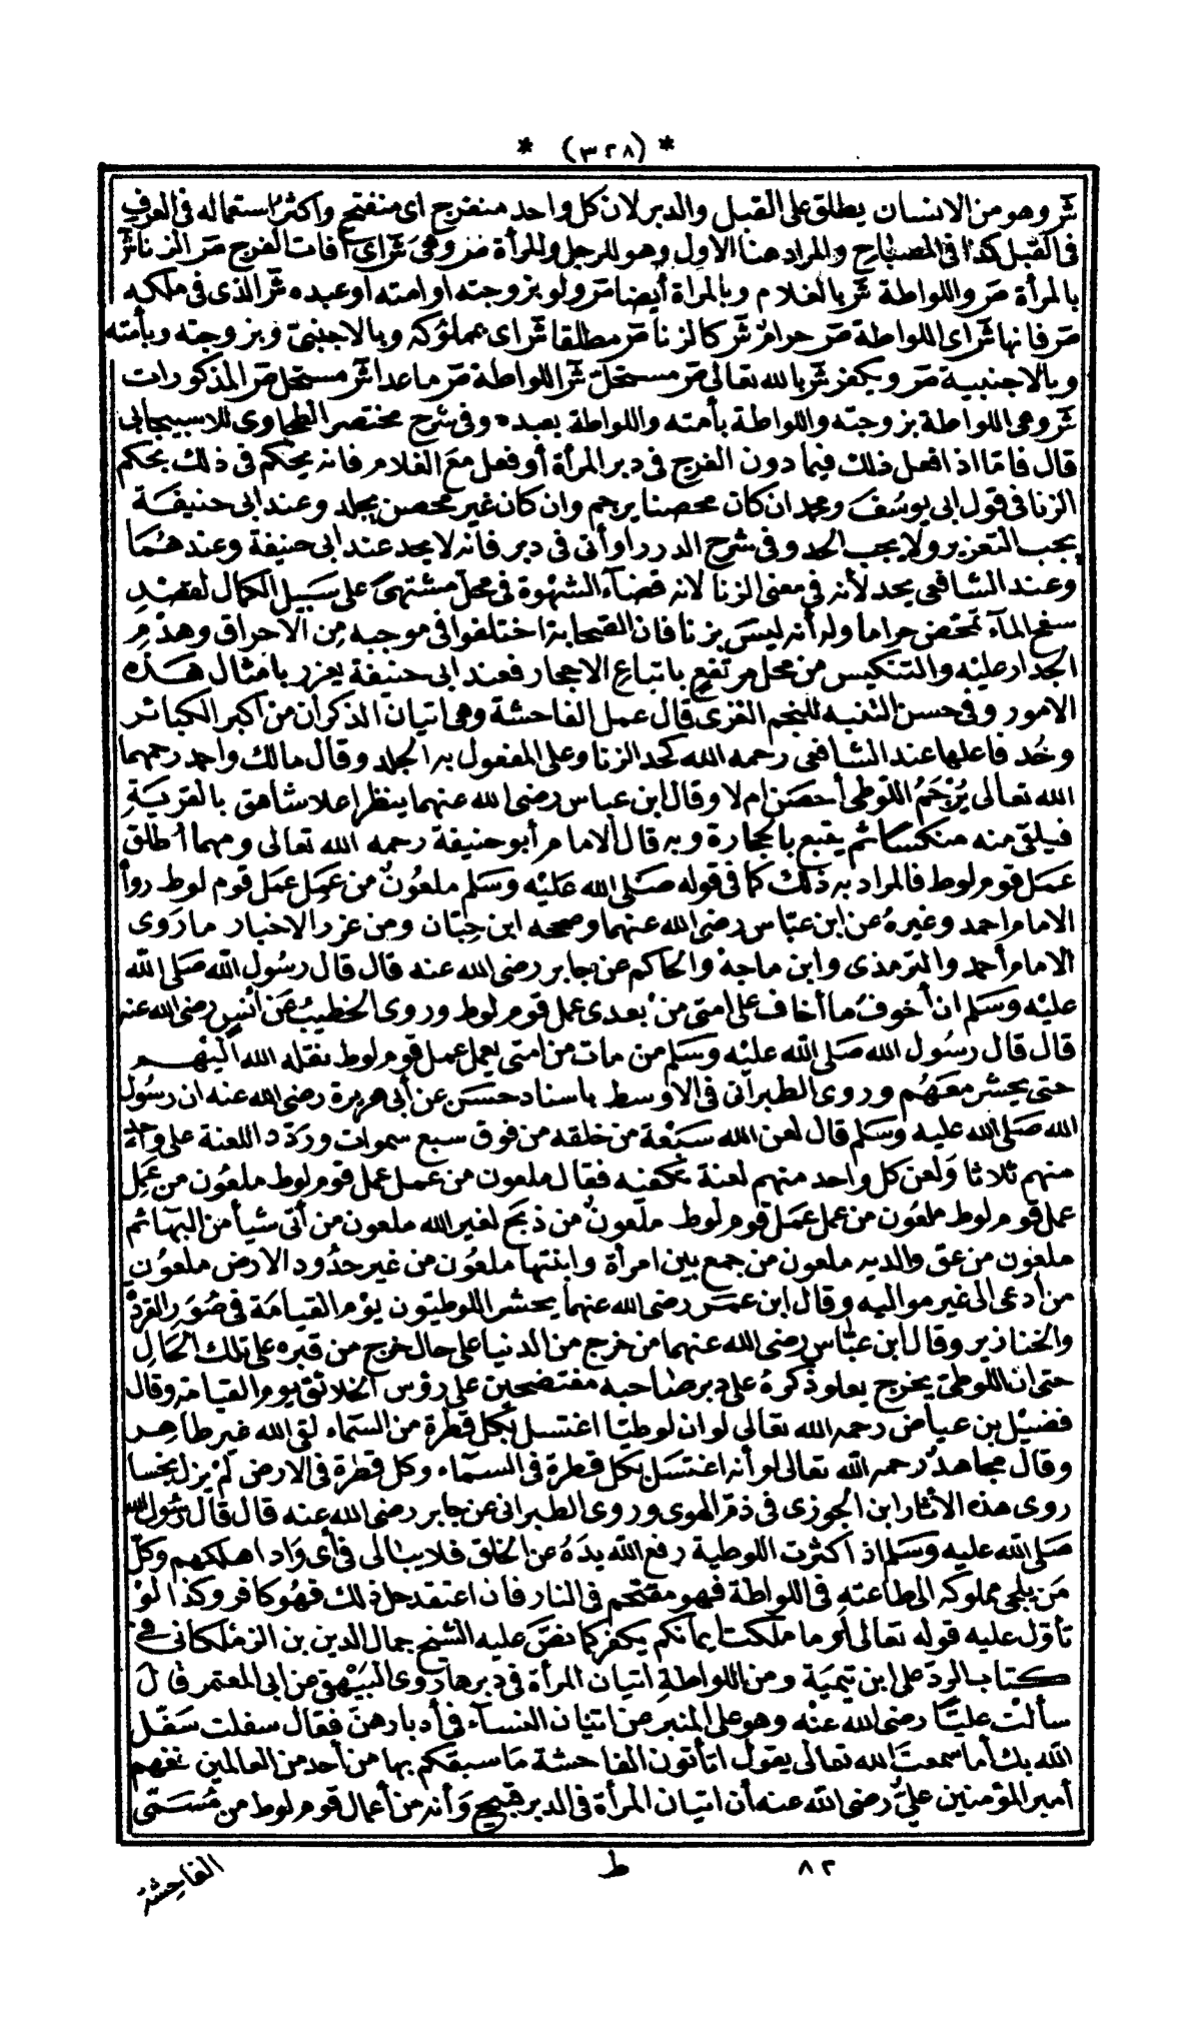 * (٣٢٨) *
شر وهو من الانسان يطلق على القبل والدبر لان كل واحد منفرج اى منفتح واكثر استعماله فى العرف
فى القبل كذا فى المصباح والمراد هنا الاول وهو للرجل وللمرأة صر وهى شر اى آفات الفرج صر الزنا شر
بالمرأة صر واللواطة شر بالغلام وبالمرأة أيضا صر ولو بزوجته او امته او عبده شر الذى فى ملكه
صر فانها شر اى اللواطة صر حرام شر كالزنا صر مطلقا شر اى بمملوكه وبالاجنبى وبزوجته وبأمته
وبالاجنبية صر ويكفر شر بالله تعالى صر مستحل شر اللواطة صر ما عدا شر مستحل صر المذكورات
شر وهى اللواطة بزوجته واللواطة بأمته واللواطة بعبده وفى شرح مختصر الطحاوى للاسبيجابى
قال فامّا اذ افعل ذلك فيما دون الفرج فى دبر المرأة أو فعل مع الغلام فانه يحكم فى ذلك بحكم
الزنا فى قول ابى يوسُفَ ومحمد ان كان محصنا يرجم وان كان غير محصن يجلد وعند ابى حنيفة
يجب التعزير ولا يجب الحد وفى شرح الدرر او أتى فى دبر فانه لا يحد عند ابى حنيفة وعندهُمَا
وعند الشافعى يحد لأنه فى معنى الزنا لانه قضآء الشهْوة فى محل مشتهىً على سَبيل الكمال لقصْدِ
سفح المآء تمحّض حراما وله أنه ليسَ بزنا فان الصّحابة اختلفوا فى موجبه مِن الاحراق وهذْمِ
الجدار عليْه والتنكيس من محل مرتفع باتباعِ الاحجار فعند ابى حنيفة يعزر بامثال هَذه
الامور وفى حسن التنبه للنجم الغزى قال عمل الفاحشة وهى اتيان الذكران من أكبر الكبائر
وحُد فاعلها عند الشافعى رحمه الله كحد الزنا وعلى المفعول به الجلد وقال مالك واحمد رحمهما
الله تعالى يُرْجَمُ اللّوطى أحصَن ام لا وقال ابن عباس رضى الله عنهما ينظر اعلا شاهق بالقريَةِ
فيلقى منه منكسا ثم يتبع بالحجارة وبه قال الامام أبو حنيفة رحمه الله تعالى ومهما أطلق
عمَل قوم لوط فالمراد به ذلك كما فى قوله صَلى الله عَليْه وسَلم ملعُونٌ من عَمِل عمَل قوم لوط رواه
الامام احمد وغيرهُ عن ابن عبّاس رضى الله عنهما وصححه ابن حِبّان ومن غرر الاخبار ما رَوى
الامام أحمد والترمذى وابن ماجهْ والحاكم عن جابر رضى الله عنه قال قال رسُول الله صَلى الله
عليْه وسَلم ان أخوفُ ما أخاف على امتى منْ بعدى عمل قوم لوط وروى الخطيبُ عَن أنسٍ رضى الله عنه
قال قال رسُول الله صَلى الله عليْه وسَلم من مات من امتى يعمل عمل قوم لوط نقله الله الَيْهم
حتى يحشر معَهُم وروى الطبرانى فى الاوسط باسناد حسَن عن أبى هريرة رضى الله عنه ان رسُول
الله صَلى الله عليه وسَلم قال لعن الله سَبْعة من خلقه من فوق سبع سموات وردّد اللعنة على واحد
منهم ثلاثا وَلعن كل واحد منهم لعنة تكفيه فقال ملعون من عمل عمل قوم لوط ملعُون من عَمِل
عمل قوم لوط ملعُون من عمل عمَل قوم لوط ملعونٌ من ذبحَ لغير الله ملعون من أتى شيأ من البهائم
ملعُون من عق والديه ملعون من جمع بين امرأة وابنتها ملعُون من غير حدُود الارض ملعُون
من ادعى الى غير مواليه وقال ابن عمَر رضى الله عنهما يحشر اللوطيّون يوْم القيامَة فى صُوَر القردَة
والخنازير وقال ابن عبّاس رضى الله عنهما من خرج من الدنيا على حال خرج من قبره على تلك الحَالِ
حتى ان اللوطىّ يخرج يعلو ذكرهُ على دبر صَاحبه مفتضحين على رؤس الخلائق يوم القيامة وقال
فضيْل بن عياض رحمه الله تعالى لو ان لوطيّا اغتسل بكل قطرة من السّماء لقى الله غير طاهر
وقال مجاهدٌ رحمه الله تعالى لو أنه اغتسَل بكل قطرة فى السمآء وكل قطرة فى الارض لمْ يزل نجسا
روى هذه الأثار ابن الجوزى فى ذمّ الهوى وروى الطبرانى عن جابر رضى الله عنه قال قال رسُول الله
صَلى الله عليه وسَلم اذ اكثرت اللوطية رفع الله يدَهُ عن الخلق فلا يبالى فى أى وَاد اهلكهم وكلّ
مَن يلجى مملوكه الى طاعتهِ فى اللواطة فهو مقتحم فى النار فان اعتقد حل ذلك فهُو كافر وكذا لوْ
تأوّل عليه قوله تعالى أو ما ملكت ايمانكم يكفر كما نصّ عليه الشيخ جمال الدين بن الزملكانى فى
كتاب الردّ على ابن تيميَة ومن اللواطةِ اتيان المرأة فى دبرها روى البَيْهقى عن ابى المعتمر قالَ
سألتُ عليّاً رضى الله عنْه وهو على المنبر عن اتيان النسآء فى أدبارهنّ فقال سفلت سَفّل
الله بك أما سمعتَ الله تعالى يقول اتأتون الفاحشة مَا سبقكم بها من أحد من العالمين نفهم
أمير المؤمنين علىٌّ رضى الله عنه أن اتيان المرأة فى الدبر قبيح وَأنه من أعمال قوم لوط من مُسَمّى
٨٢
ط
الفاحِشة